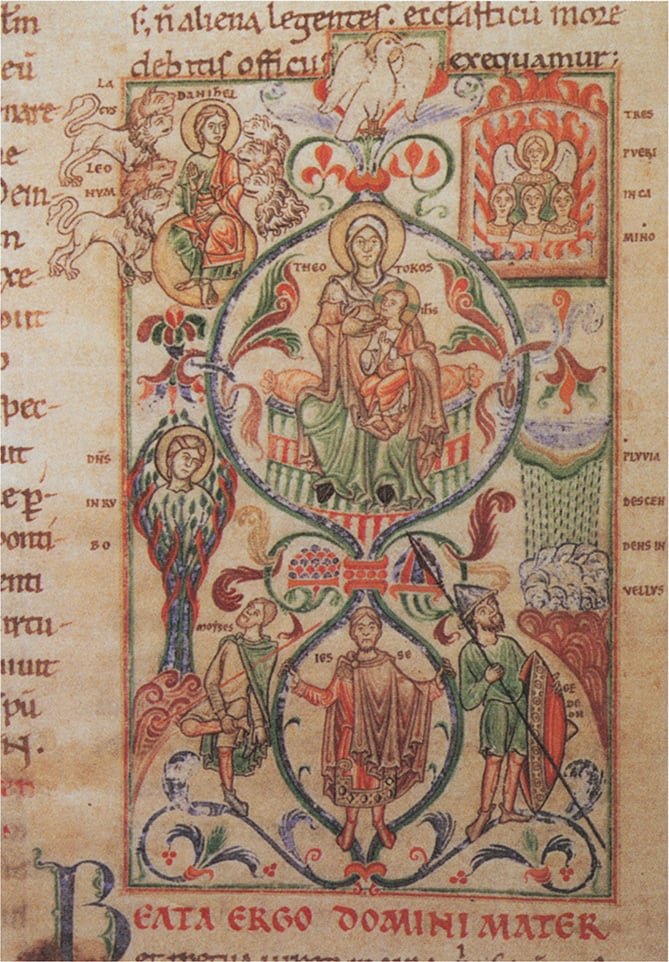 aliena legentes. eccłasticū more
debitis officiis exequamur;
LA
CVS
LEO
NVM
DANIHEL
TRES
PVERI
IN CA
MINO
THEO TOKOS
ihs
DN̄S
IN RV
BO
PLVVIA
DESCEN
DENS IN
VELLVS
MOYSES
IES SE
GE
DE
ON
eū
nare
ne
xe-
spec-
ponti-
enti
irtu-
uiuit
spū
BEATA ERGO DOMINI MATER